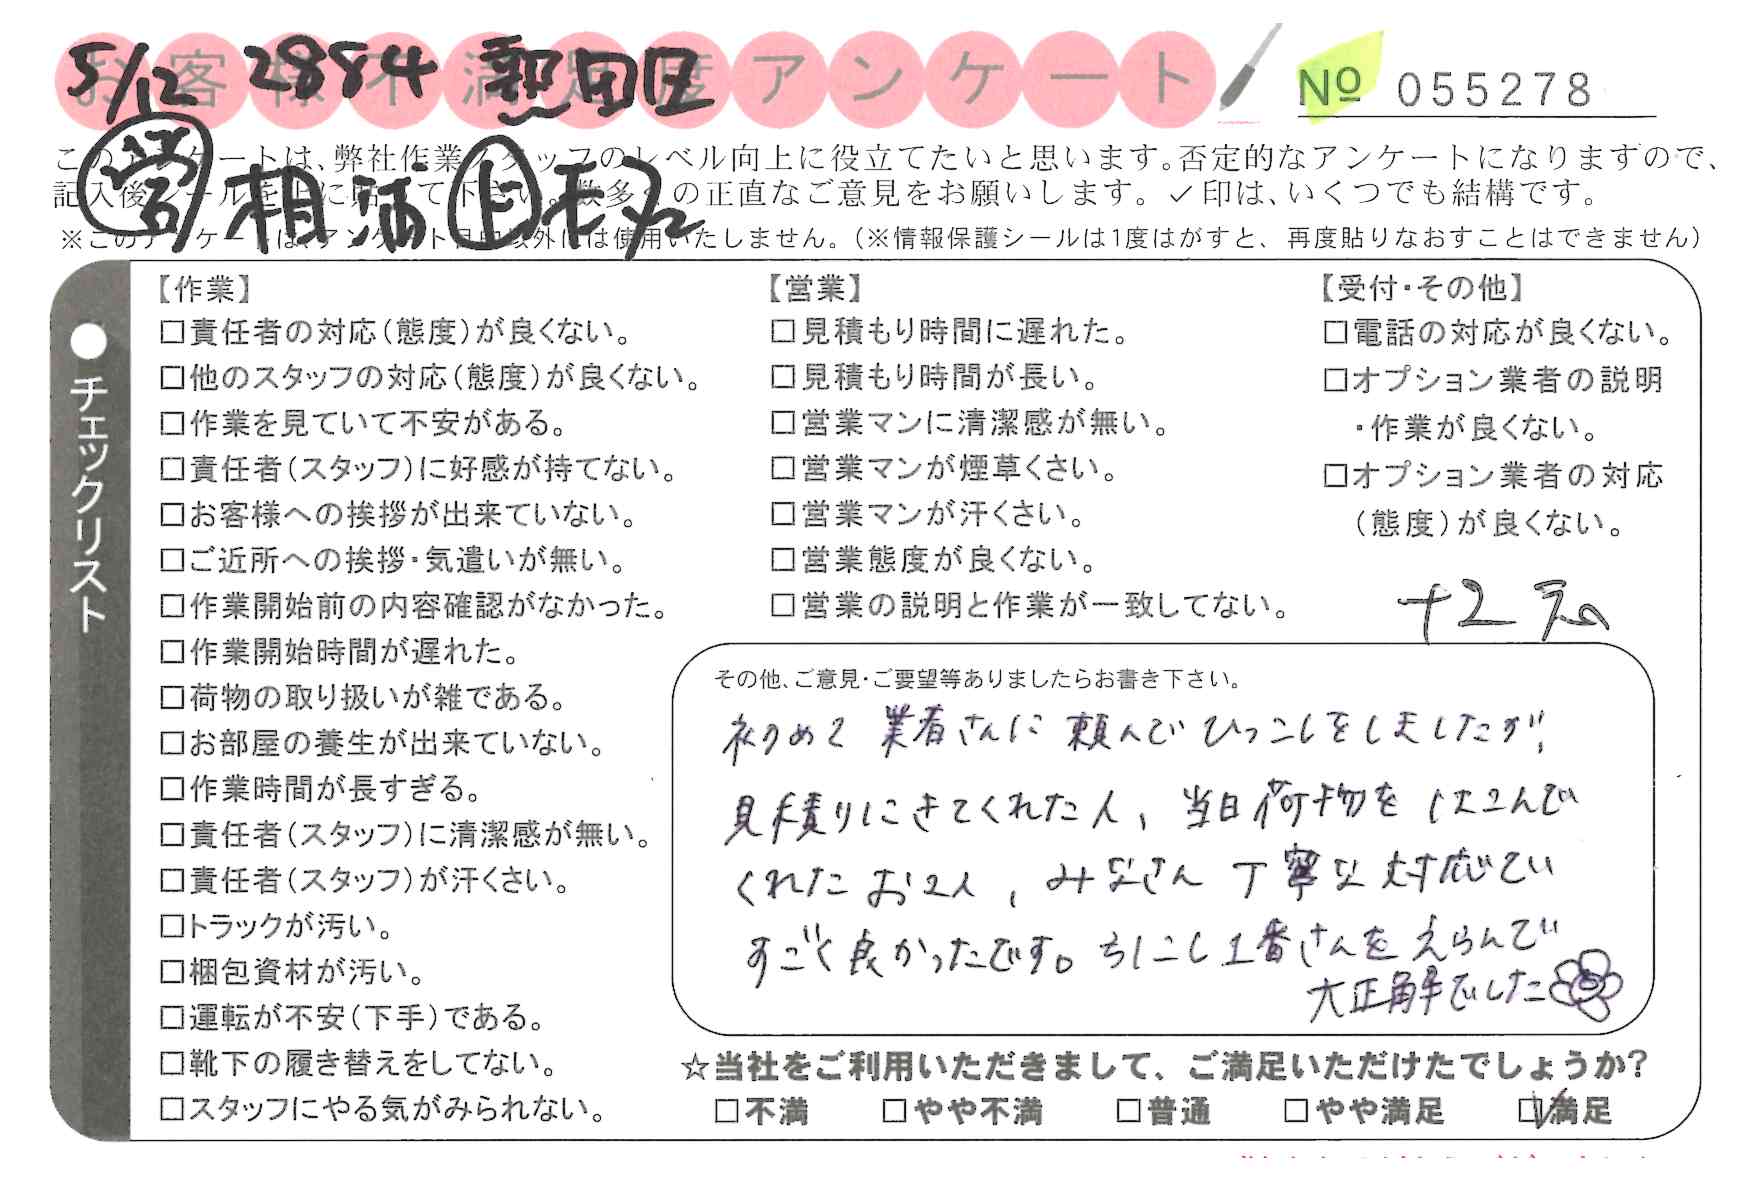 お客様不満足度アンケート
№ 055278
5/12 2884 熱田区
このアンケートは、弊社作業スタッフのレベル向上に役立てたいと思います。否定的なアンケートになりますので、
記入後シールを上に貼って下さい。数多くの正直なご意見をお願いします。✓印は、いくつでも結構です。
営 相浦 上
※このアンケートは、アンケート目的以外には使用いたしません。(※情報保護シールは1度はがすと、再度貼りなおすことはできません)
●チェックリスト
【作業】
□責任者の対応(態度)が良くない。
□他のスタッフの対応(態度)が良くない。
□作業を見ていて不安がある。
□責任者(スタッフ)に好感が持てない。
□お客様への挨拶が出来ていない。
□ご近所への挨拶・気遣いが無い。
□作業開始前の内容確認がなかった。
□作業開始時間が遅れた。
□荷物の取り扱いが雑である。
□お部屋の養生が出来ていない。
□作業時間が長すぎる。
□責任者(スタッフ)に清潔感が無い。
□責任者(スタッフ)が汗くさい。
□トラックが汚い。
□梱包資材が汚い。
□運転が不安(下手)である。
□靴下の履き替えをしてない。
□スタッフにやる気がみられない。
【営業】
□見積もり時間に遅れた。
□見積もり時間が長い。
□営業マンに清潔感が無い。
□営業マンが煙草くさい。
□営業マンが汗くさい。
□営業態度が良くない。
□営業の説明と作業が一致してない。
【受付・その他】
□電話の対応が良くない。
□オプション業者の説明
・作業が良くない。
□オプション業者の対応
(態度)が良くない。
+2
その他、ご意見・ご要望等ありましたらお書き下さい。
初めて業者さんに頼んでひっこしをしましたが、
見積りにきてくれた人、当日荷物をはこんで
くれたお2人、みなさん丁寧な対応でい
すごく良かったです。ひこし1番さんをえらんで
大正解でした
☆当社をご利用いただきまして、ご満足いただけたでしょうか?
□不満 □やや不満 □普通 □やや満足 ☑満足